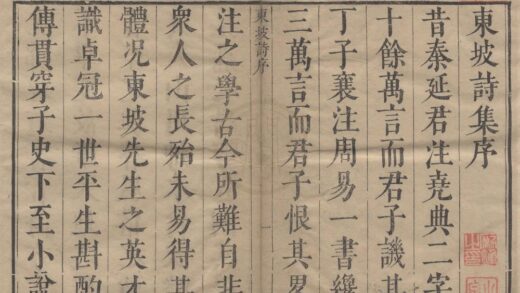 東坡詩集序
昔秦延君注堯典二字
十餘萬言而君子譏其
丁子襄注周易一書纔
三萬言而君子恨其畧
東坡詩序
注之學古今所難自非
衆人之長殆未易得其
體况東坡先生之英才
識卓冠一世平生斟酌
傳貫穿子史下至小說